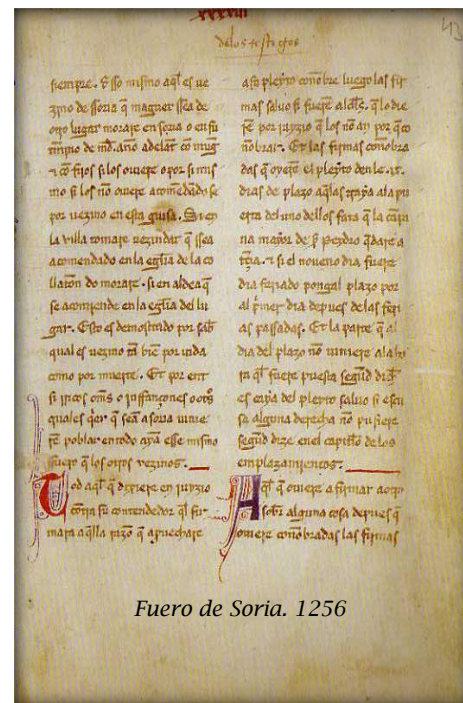 xxxviii
delos testigos
43
siempre. & esso mismo aql es ue
zino de soria q̃ maguer ssea de
otro lugar morare en soria o en su
por uezino en esta guisa. Si en
la villa tomare uezindat q̃ ssea
acomendado en la egl̃ia de la co
llation do morare. si en aldea q̃
se acomiende en la egl̃ia del lu
gar. Esto es demostrado por sab̃
qual es uezino tã biẽ por uida
como por muerte. Et por ent
quales q̃er q̃ seã a soria uinie
rẽ poblar en todo ayã esse mismo
fuero q̃ los otros vezinos.
Tod aql̃ q̃ dixiere en iuyzio
cõtra su contendedor q̃l fir
mara aq̃lla razõ q̃ aprouechare
a so pleyto cõnõbre luego las fir
mas saluo si fuerẽ alcl̃s. q̃ lo die
rẽ por iuyzio q̃ los nõ an por q̃ cõ
nõbrar. Et las firmas connõbra
das q̃ oyerẽ el pleyto denle .ix.
dias de plazo aq̃ las traya a la pu
erta del uno dellos fata q̃ la cãpa
na mayor de sã Peydro q̃dare a
tc̃ia. & si el noueno dia fuere
dia feriado pongal plazo por
al p̃mer dia depues de las feri
as passadas. Et la parte q̃ al
dia del plazo nõ uiniere a la ho
ra q̃l fuere puesta segũd dich̃
es caya del pleyto saluo si escu
sa alguna derecha nõ pusiere
segũd dize en el capitl̃o de los
emplazamientos.
Aql̃ q̃ ouiere a firmar a otro
sobr̃ alguna cosa depues q̃
ouiere cõnõbradas las firmas
Fuero de Soria. 1256